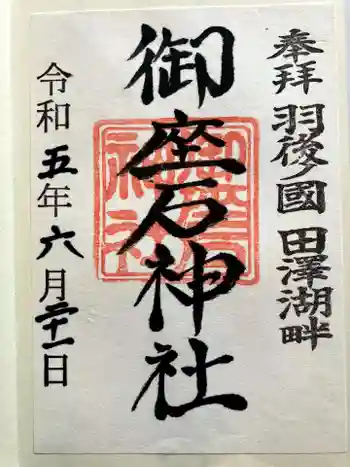 奉拝 羽後ノ國 田澤湖畔
御座石神社
令和五年六月二十一日
御座石
神社